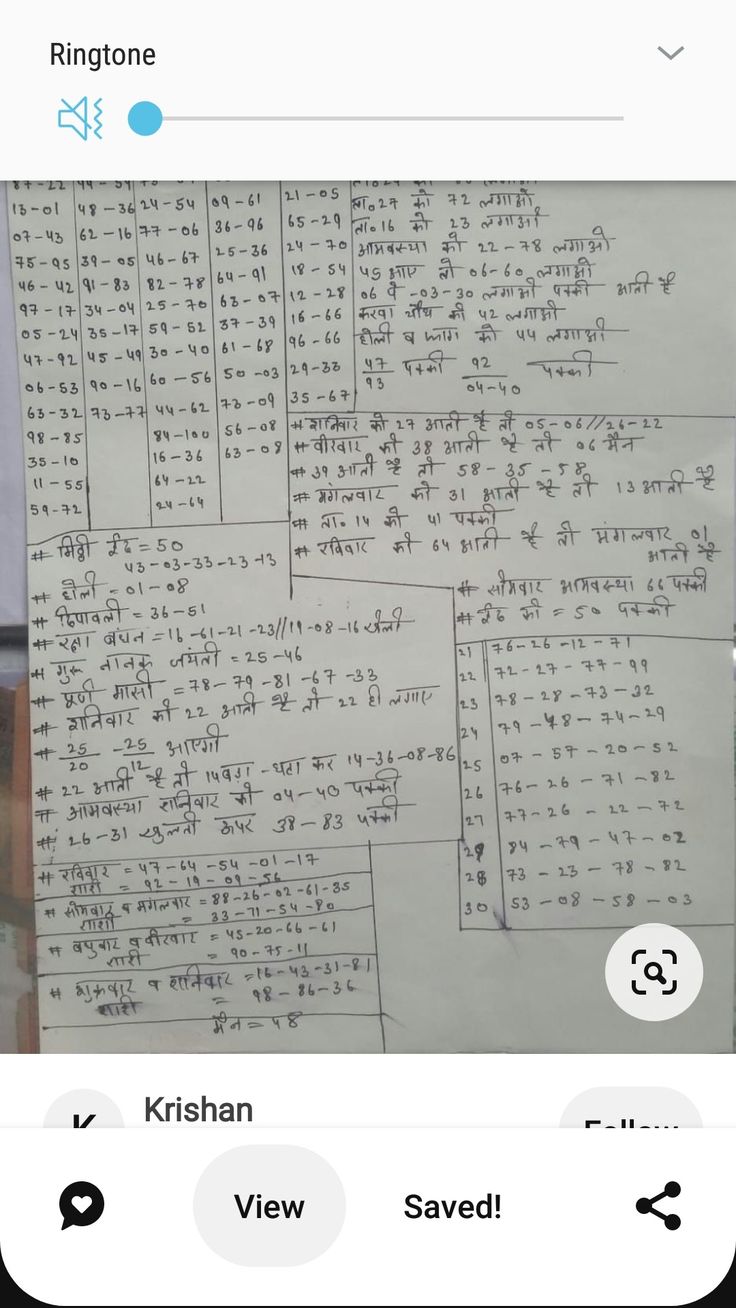 Ringtone
87-22
13-01
07-43
75-95
46-42
97-17
05-24
47-92
06-53
63-32
98-85
35-10
11-55
59-72
48-36
62-16
39-05
91-83
34-04
35-17
45-49
90-16
73-77
24-54
77-06
46-67
82-78
25-70
59-52
30-40
60-56
44-62
84-100
16-36
64-22
24-64
09-61
36-96
25-36
64-91
63-07
37-39
61-68
50-03
73-09
56-08
63-08
21-05
65-29
24-70
18-54
12-28
16-66
96-66
29-33
35-67
ता०27 को 72 लगाओ
ता०16 को 23 लगाओ
आमवस्या को 22-78 लगाओ
45 आए तो 06-60 लगाओ
06 पे -03-30 लगाओ पक्की आती है
करवा चौथ को 42 लगाओ
होली व फाग को 44 लगाओ
47/93 पक्की 92/04-40 पक्की
# शनिवार को 27 आती है तो 05-06//26-22
# वीरवार को 38 आती है तो 06 मैन
# 39 आती है तो 58-35-58
# मंगलवार को 31 आती है तो 13 आती है
# ता० 14 को 41 पक्की
# रविवार को 64 आती है तो मंगलवार 01
आती है
# मिठ्ठी ईद = 50
43-03-33-23-13
# होली = 01-08
# दिपावली = 36-51
# रक्षा बंधन = 16-61-21-23//19-08-16 खेली
# गुरू नानक जयंती = 25-46
# पूर्ण मासी = 78-79-81-67-33
# शनिवार को 22 आती है तो 22 ही लगाए
# 25/20 -25/12 आएगी
# 22 आती है तो 14 बढ़ा -घटा कर 14-36-08-86
# आमवस्या शनिवार को 04-40 पक्की
# 26-31 खुलती ऊपर 38-83 पक्की
# सोमवार आमवस्या 66 पक्की
# ईद को = 50 पक्की
21 76-26-12-71
22 72-27-77-99
23 78-28-73-32
24 79-48-74-29
25 07-57-20-52
26 76-26-71-82
27 77-26-22-72
84-79-47-02
28 73-23-78-82
30 53-08-58-03
# रविवार = 47-64-54-01-17
राशी = 92-19-09-56
# सोमवार व मंगलवार = 88-26-02-61-35
राशी = 33-71-54-80
# बुधवार व वीरवार = 45-20-66-61
राशी = 90-75-11
# शुक्रवार व शनिवार = 16-43-31-81
राशी = 98-86-36
मैन = 48
Krishan
Follow
K
View
Saved!